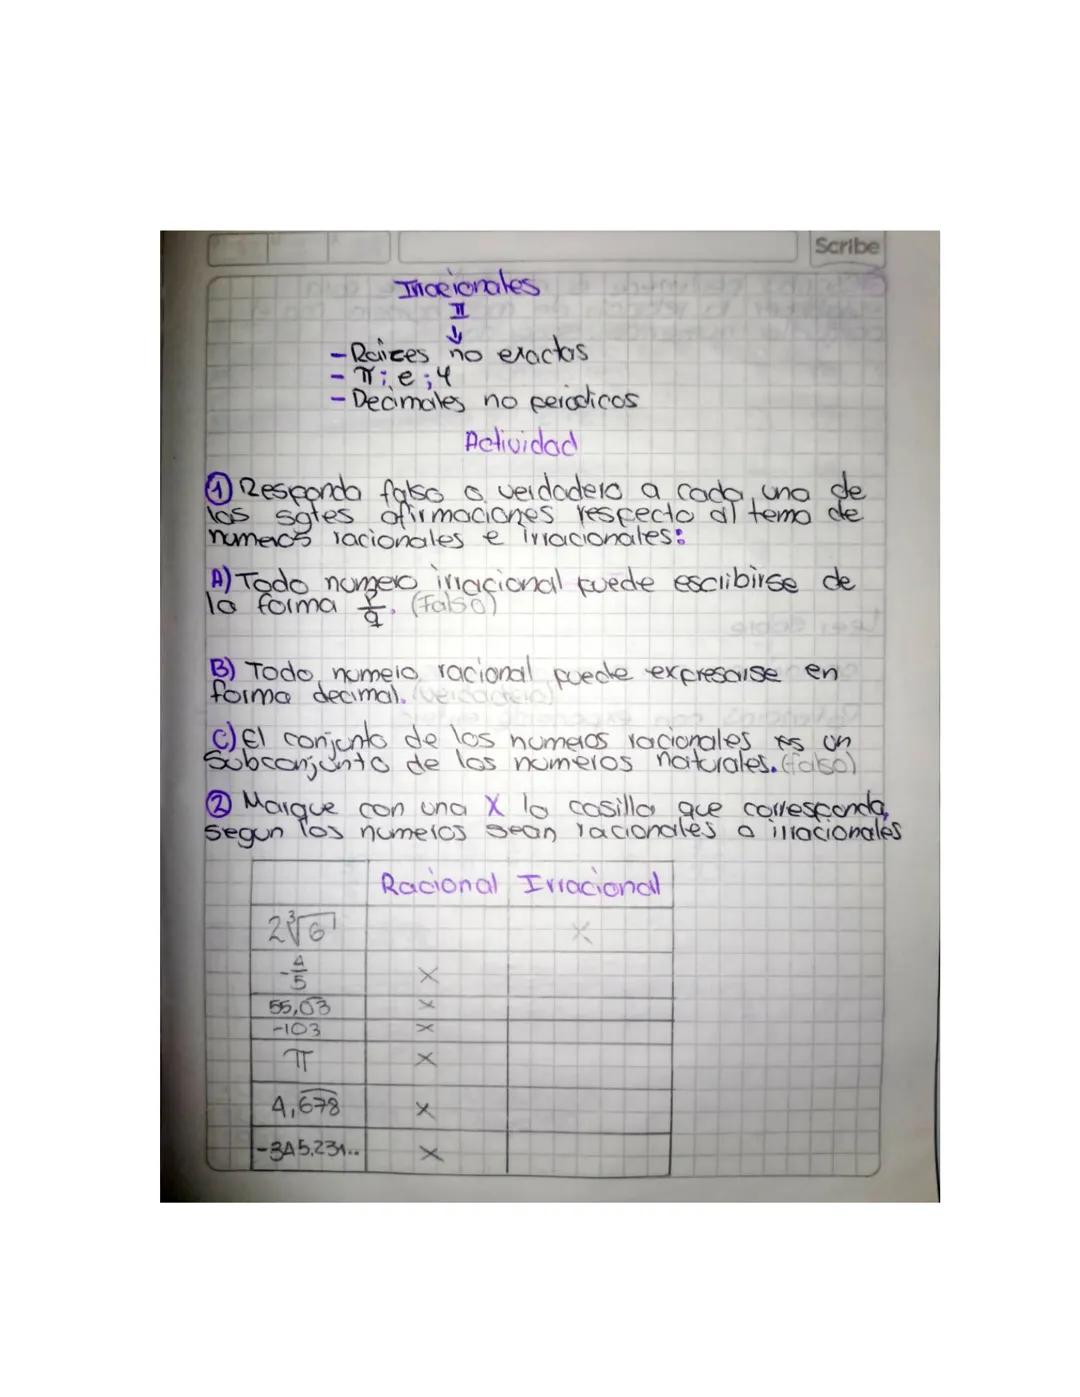 Scribe
Irracionales
II
↓
- Raices no exactas
- π; e; φ
- Decimales no periodicos
Actividad
① Responda falso o verdadero a cada una de
las sgtes afirmaciones respecto al tema de
numeros racionales e irracionales:
A) Todo numero irracional puede escribirse de
la forma p/q. (Falso)
B) Todo numero racional puede expresarse en
forma decimal. (verdadero)
C) El conjunto de los numeros racionales es un
Subconjunto de los numeros naturales. (falso)
② Marque con una X la casilla que corresponda,
segun los numeros sean racionales o irracionales
Racional Irracional
2∛6 X
-4/5 X
55,03 X
-103 X
π X
4,678 X
-345.231.. X